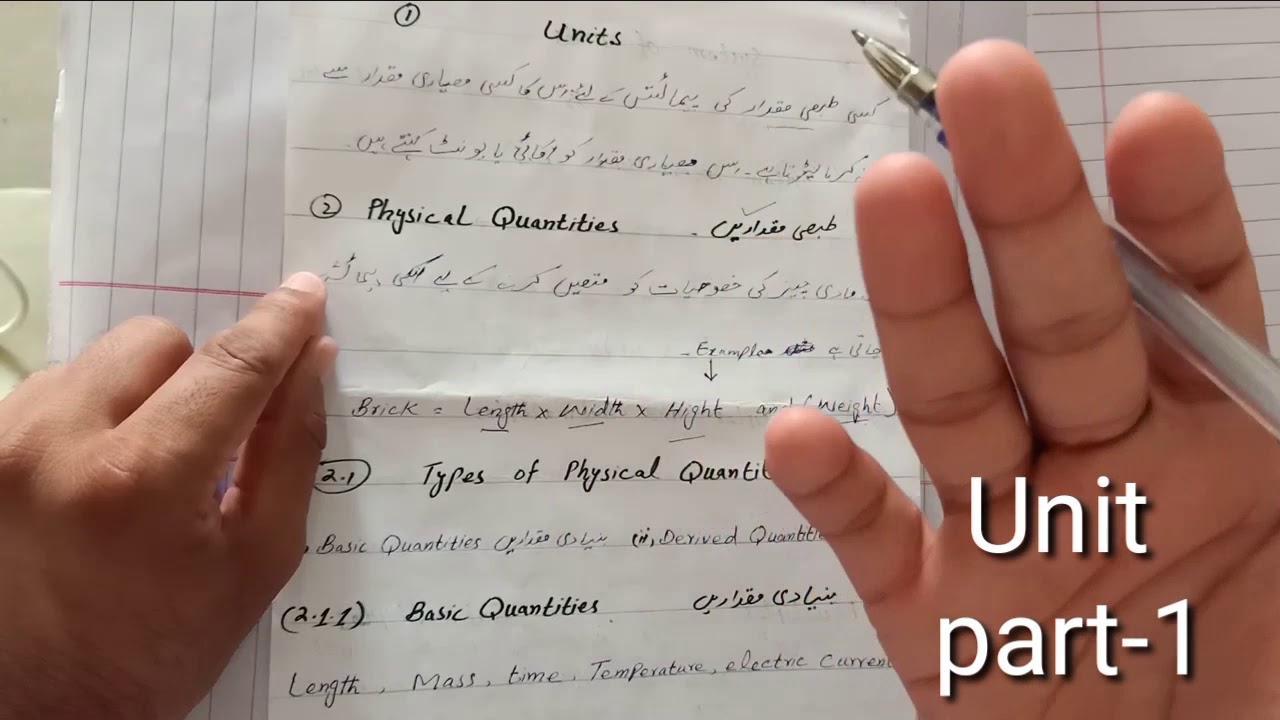 ① Units
کسی طبعی مقدار کی پیمائش کے لئے اس کا کسی معیاری مقدار سے
کرنا پڑتا ہے۔ اس معیاری مقدار کو اکائی یا یونٹ کہتے ہیں۔
② Physical Quantities طبعی مقداریں
مادی چیز کی خصوصیات کو متعین کرنے کے لیے انکی پیمائش
جاتی ہے
Example
Brick = Length x Width x Hight and (Weight)
2.1 Types of Physical Quantit
Basic Quantities بنیادی مقداریں (ii, Derived Quantitie
(2.1.1) Basic Quantities بنیادی مقداریں
Length, Mass, time, Temperature, electric Current
Unit
part-1